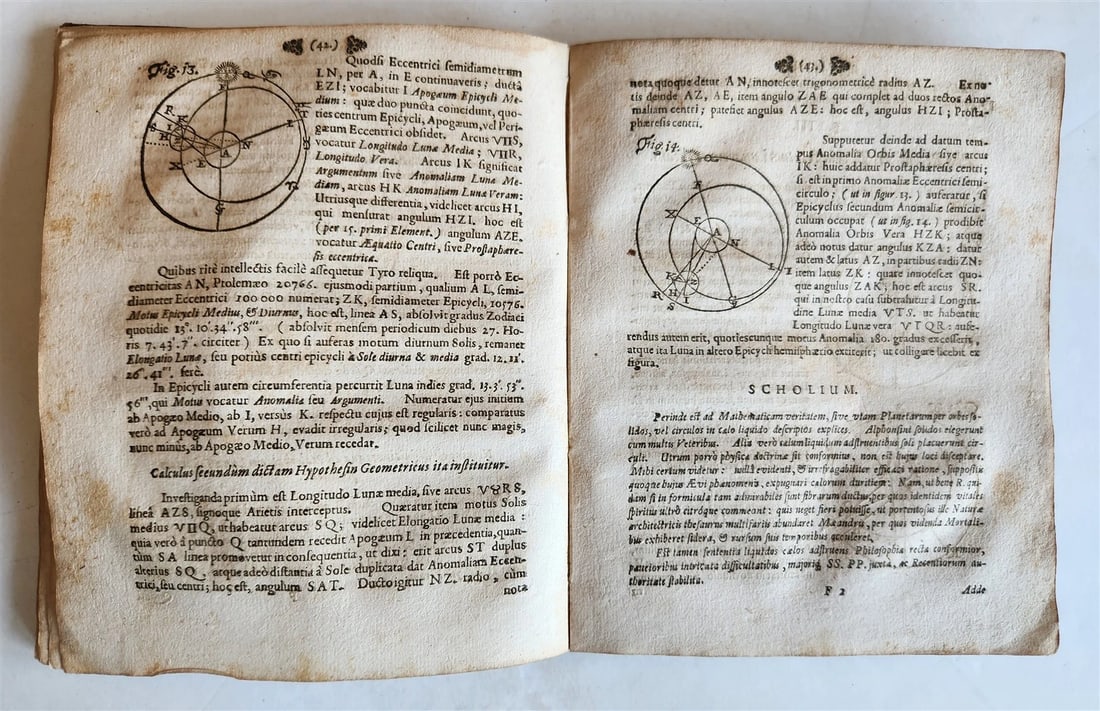 (42.)
Fig. 13.
Quodsi Eccentrici semidiametrum
LN, per A, in E continuaveris; ductâ
EZI; vocabitur I Apogæum Epicycli Me-
dium: quæ duo puncta coincidunt, quo-
ties centrum Epicycli, Apogæum, vel Peri-
gæum Eccentrici obsidet. Arcus
vocatur Longitudo Lunæ Media;
Longitudo Vera. Arcus IK significat
Argumentum sive Anomaliam Lunæ Me-
diam, arcus HK Anomaliam Lunæ Veram:
Utriusque differentia, videlicet arcus HI,
qui mensurat angulum HZI, hoc est
(per 15. primi Element.) angulum AZE,
vocatur Æquatio Centri, sive Prostaphære-
sis eccentrica.
Quibus ritè intellectis facilè assequetur Tyro reliqua. Est porrò Ec-
centricitas AN, Ptolemæo 20766. ejusmodi partium, qualium AL, semi-
diameter Eccentrici 100000 numerat; ZK, semidiameter Epicycli, 10576.
Motus Epicycli Medius, & Diurnus, hoc est, linea AS, absolvit gradus Zodiaci
quotidie 13°. 10'. 34''. 58'''. (absolvit mensem periodicum diebus 27. Ho-
ris 7. 43'. 7''. circiter) Ex quo si auferas motum diurnum Solis, remanet
Elongatio Lunæ, seu potiùs centri epicycli à Sole diurna & media grad. 12. 11'.
26''. 41'''. ferè.
In Epicycli autem circumferentia percurrit Luna indies grad. 13. 3'. 53''.
56''', qui Motus vocatur Anomalia seu Argumenti. Numeratur ejus initium
ab Apogæo Medio, ab I, versùs K. respectu cujus est regularis: comparatus
verò ad Apogæum Verum H, evadit irregularis; quod scilicet nunc magis,
nunc minus, ab Apogæo Medio, Verum recedat.
Calculus secundùm dictam Hypothesin Geometricus ita instituitur.
Investiganda primùm est Longitudo Lunæ media, sive arcus
lineâ AZS, signoque Arietis interceptus. Quæratur item motus Solis
medius, ut habeatur arcus SQ; videlicet Elongatio Lunæ media:
quia verò à puncto Q tantundem recedit Apogæum L in præcedentia, quan-
tùm SA linea promovetur in consequentia, ut dixi: erit arcus ST duplus
alterius SQ, atque adeò distantia à Sole duplicata dat Anomaliam Eccen-
trici, seu centri; hoc est, angulum SAT. Ductoigitur NZ. radio, cùm
nota
(43.)
nota quoque detur AN, innotescet trigonometricè radius AZ. Ex no-
tis deinde AZ, AE, item angulo ZAE qui complet ad duos rectos Ano-
maliam centri; patefiet angulus AZE: hoc est, angulus HZI; Prosta-
phæresis centri.
Fig. 14.
Supputetur deinde ad datum tem-
pus Anomalia Orbis Media sive arcus
IK: huic addatur Prostaphæresis centri;
si est in primo Anomaliæ Eccentrici semi-
circulo; (ut in figur. 13.) auferatur, si
Epicyclus secundum Anomaliæ semicir-
culum occupat (ut in fig. 14.) prodibit
Anomalia Orbis Vera HZK; atque
adeò notus datur angulus KZA: datur
autem & latus AZ, in partibus radii ZN:
item latus ZK: quare innotescet quo-
que angulus ZAK, hoc est arcus SR.
qui in nostro casu subtrahitur à Longitu-
dine Lunæ media ut habeatur
Longitudo Lunæ vera: aufe-
rendus autem erit, quotiescunque motus Anomaliæ 180. gradus excesserit,
atque ita Luna in altero Epicycli hemisphærio extiterit; ut colligare licebit ex
figura.
SCHOLIUM.
Perinde est ad Mathematicam veritatem, sive viam Planetarum per orbes so-
lidos, vel circulos in cælo liquido descriptos explices. Alphonsini solidos elegerunt
cum multis Veteribus. Aliis verò cælum liquidum adstruentibus soli placuerunt cir-
culi. Utrum porrò physicæ doctrinæ sit conformius, non est hujus loci disceptare.
Mihi certum videtur: nullâ evidenti, & irrefragabiliter efficaci ratione, suppositis
quoque hujus Ævi phænomenis, expugnari cælorum duritiem: Nam, ut bene R. qui-
dam si in formicula tam admirabiles sint fibrarum ductus, per quos identidem vitales
spiritus ultrò citróque commeant: quis neget fieri potuisse, ut portentosus ille Naturæ
architectricis thesaurus multifariis abundaret Mæandris, per quos videnda Mortali-
bus exhiberet sidera, & rursum suis temporibus occuleret.
Est tamen sententia liquidos cælos adstruens Philosophiæ recta conformior,
paucioribus intricata difficultatibus, majoriq; SS. PP. juxta, ac Recentiorum au-
thoritate stabilita.
F 2
Adde